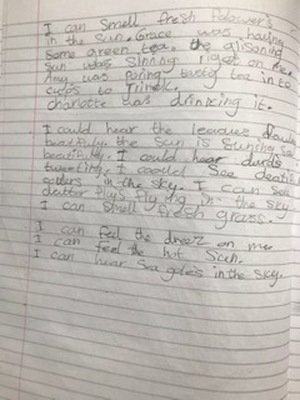 I can smell fresh folower's
in the sun. Grace was having
some green tea. the glisoning
Sun was Shinng right on me.
Amy was poring tasty tea in to
cups to Trinck.
charlotte was drinking it.
I could hear the leaudes
beatifuly. the sun is Shining so
beatifuly. I could hear durds
tweeting. I coould See
in the sky. I can see
flys flying in the sky
I can smell fresh grass.
I can feel the dreez on me
I can feel the hot Sun.
I can hear Sea goles in the sky.